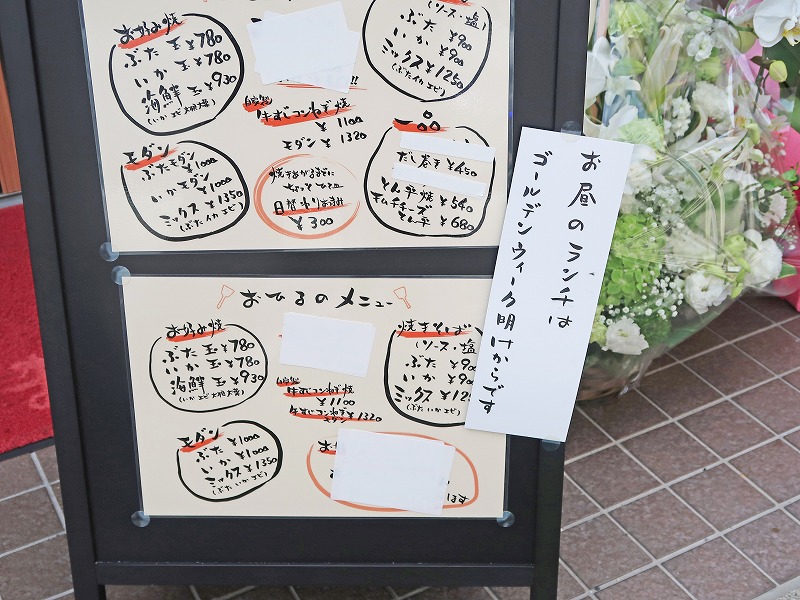 お好み焼
ぶた玉 ¥780
いか 玉 ¥780
海鮮 玉 ¥930
(いか エビ 大粒 大葉)
モダン
ぶたモダン ¥1000
いかモダン ¥1000
ミックス ¥1350
(ぶた イカ エビ)
!!
牛すじコンねぎ焼
¥1100
モダン ¥1320
焼きあがるまでに
ちょっと ひと皿
日替わりおつまみ
¥300
(ソース・塩)
ぶた ¥900
いか ¥900
ミックス ¥1250
(ぶた イカ エビ)
一品
だし巻き ¥450
とん平焼 ¥540
キムチチーズ
とん平 ¥680
おひるのメニュー
お好み焼
ぶた 玉 ¥780
いか 玉 ¥780
海鮮 玉 ¥930
モダン
ぶた ¥1000
いか ¥1000
ミックス ¥1350
(ぶた いか エビ)
牛すじコンねぎ焼
¥1100
牛すじコンねぎ ¥1320
モダン
焼きそば
(ソース・塩
ぶた ¥90
いか ¥90
ミックス ¥12
(ぶた いか エビ)
お昼のランチは
ゴールデンウィーク明けからです